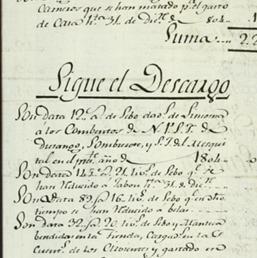 Carneros que se han matado p.r el gasto
de Casa h.ta 31. de Dic.e 804..
Suma..... 22
Sigue el Descargo
Son data 12 @ de Sebo dad.s de Limosna
a los Combentos de N.P.S.F. de
Durango, Sombrete, y S.F. del Mezqui
tal en el pres.te año de 1804
Son Data 145 @ 21 lb.s de Sebo q.e
han reducido a Jabon h.ta 31. de Dic.e
Son Data 89 @ 16 lb.s de Sebo q.e en dho
tiempo se han reducido a belas
Son data 32 @ 20 lb.s de Sebo y Manteca
bendidas en la Tienda, Cargadas en la C.ta
Cuen.s de los Sirvientes y gastado en